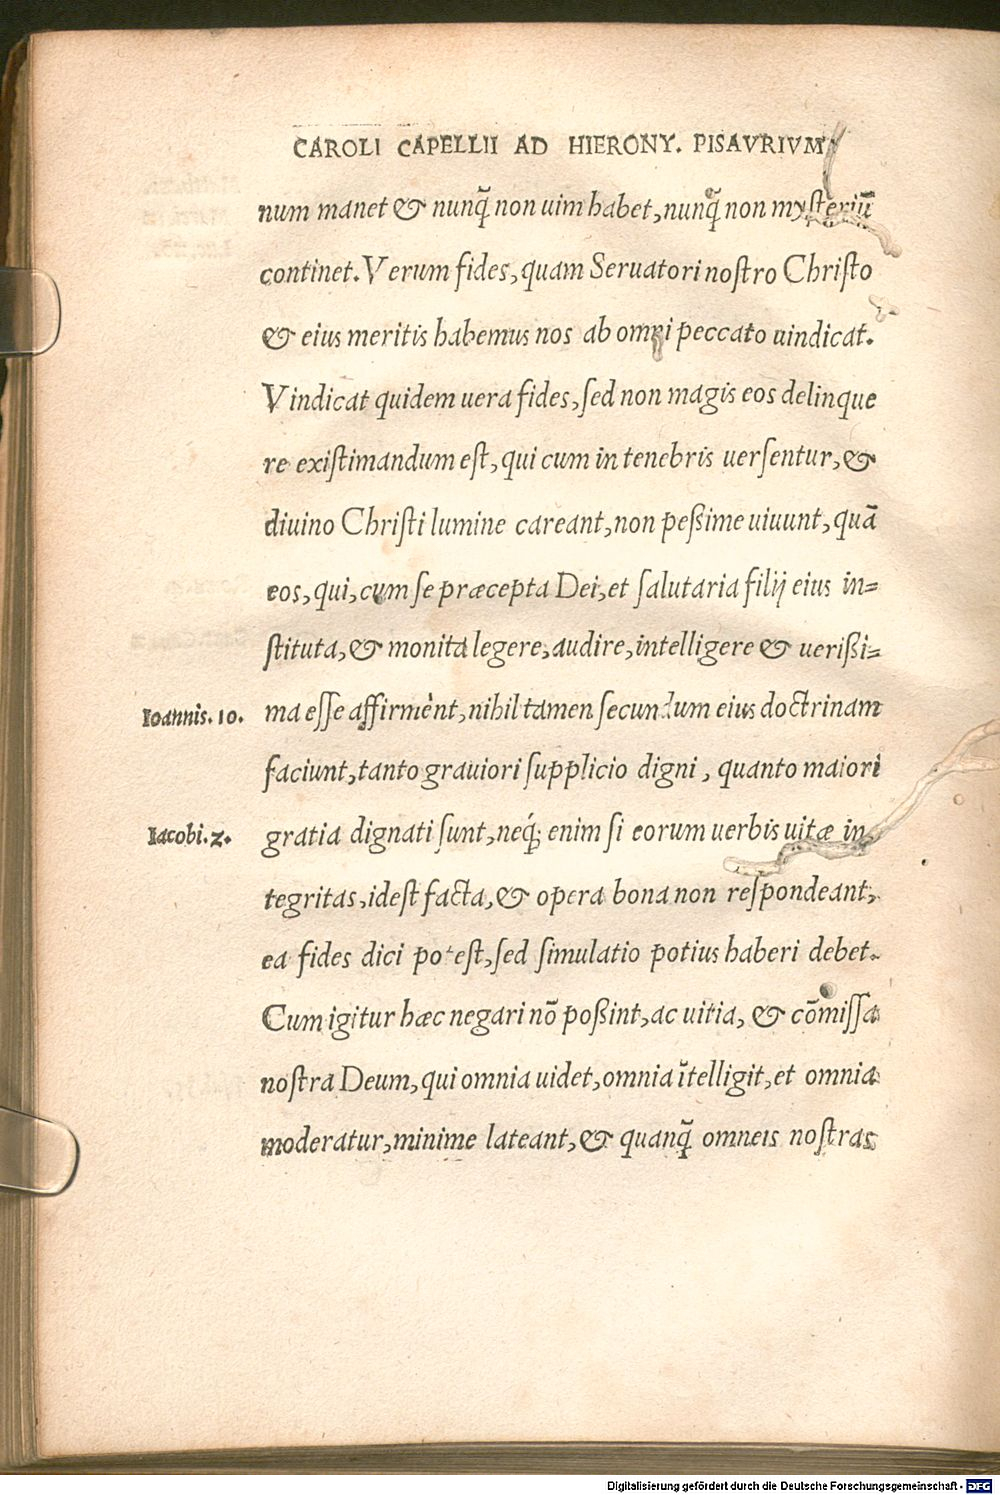 CAROLI CAPELLII AD HIERONY. PISAVRIVM
num manet & nunq̃ non uim habet, nunq̃ non mysteriũ
continet. Verum fides, quam Seruatori nostro Christo
& eius meritis habemus nos ab omni peccato uindicat.
Vindicat quidem uera fides, sed non magis eos delinque
re existimandum est, qui cum in tenebris uersentur, &
diuino Christi lumine careant, non peßime uiuunt, quã
eos, qui, cum se præcepta Dei, et salutaria filij eius in=
stituta, & monita legere, audire, intelligere & uerißi=
Ioannis. 10. ma esse affirment, nihil tamen secundum eius doctrinam
faciunt, tanto grauiori supplicio digni, quanto maiori
Iacobi. 2. gratia dignati sunt, neq́; enim si eorum uerbis uitæ in
tegritas, idest facta, & opera bona non respondeant,
ea fides dici potest, sed simulatio potius haberi debet.
Cum igitur hæc negari nõ poßint, ac uitia, & cõmissa
nostra Deum, qui omnia uidet, omnia ĩtelligit, et omnia
moderatur, minime lateant, & quanq̃ omneis nostras
Digitalisierung gefördert durch die Deutsche Forschungsgemeinschaft - DFG